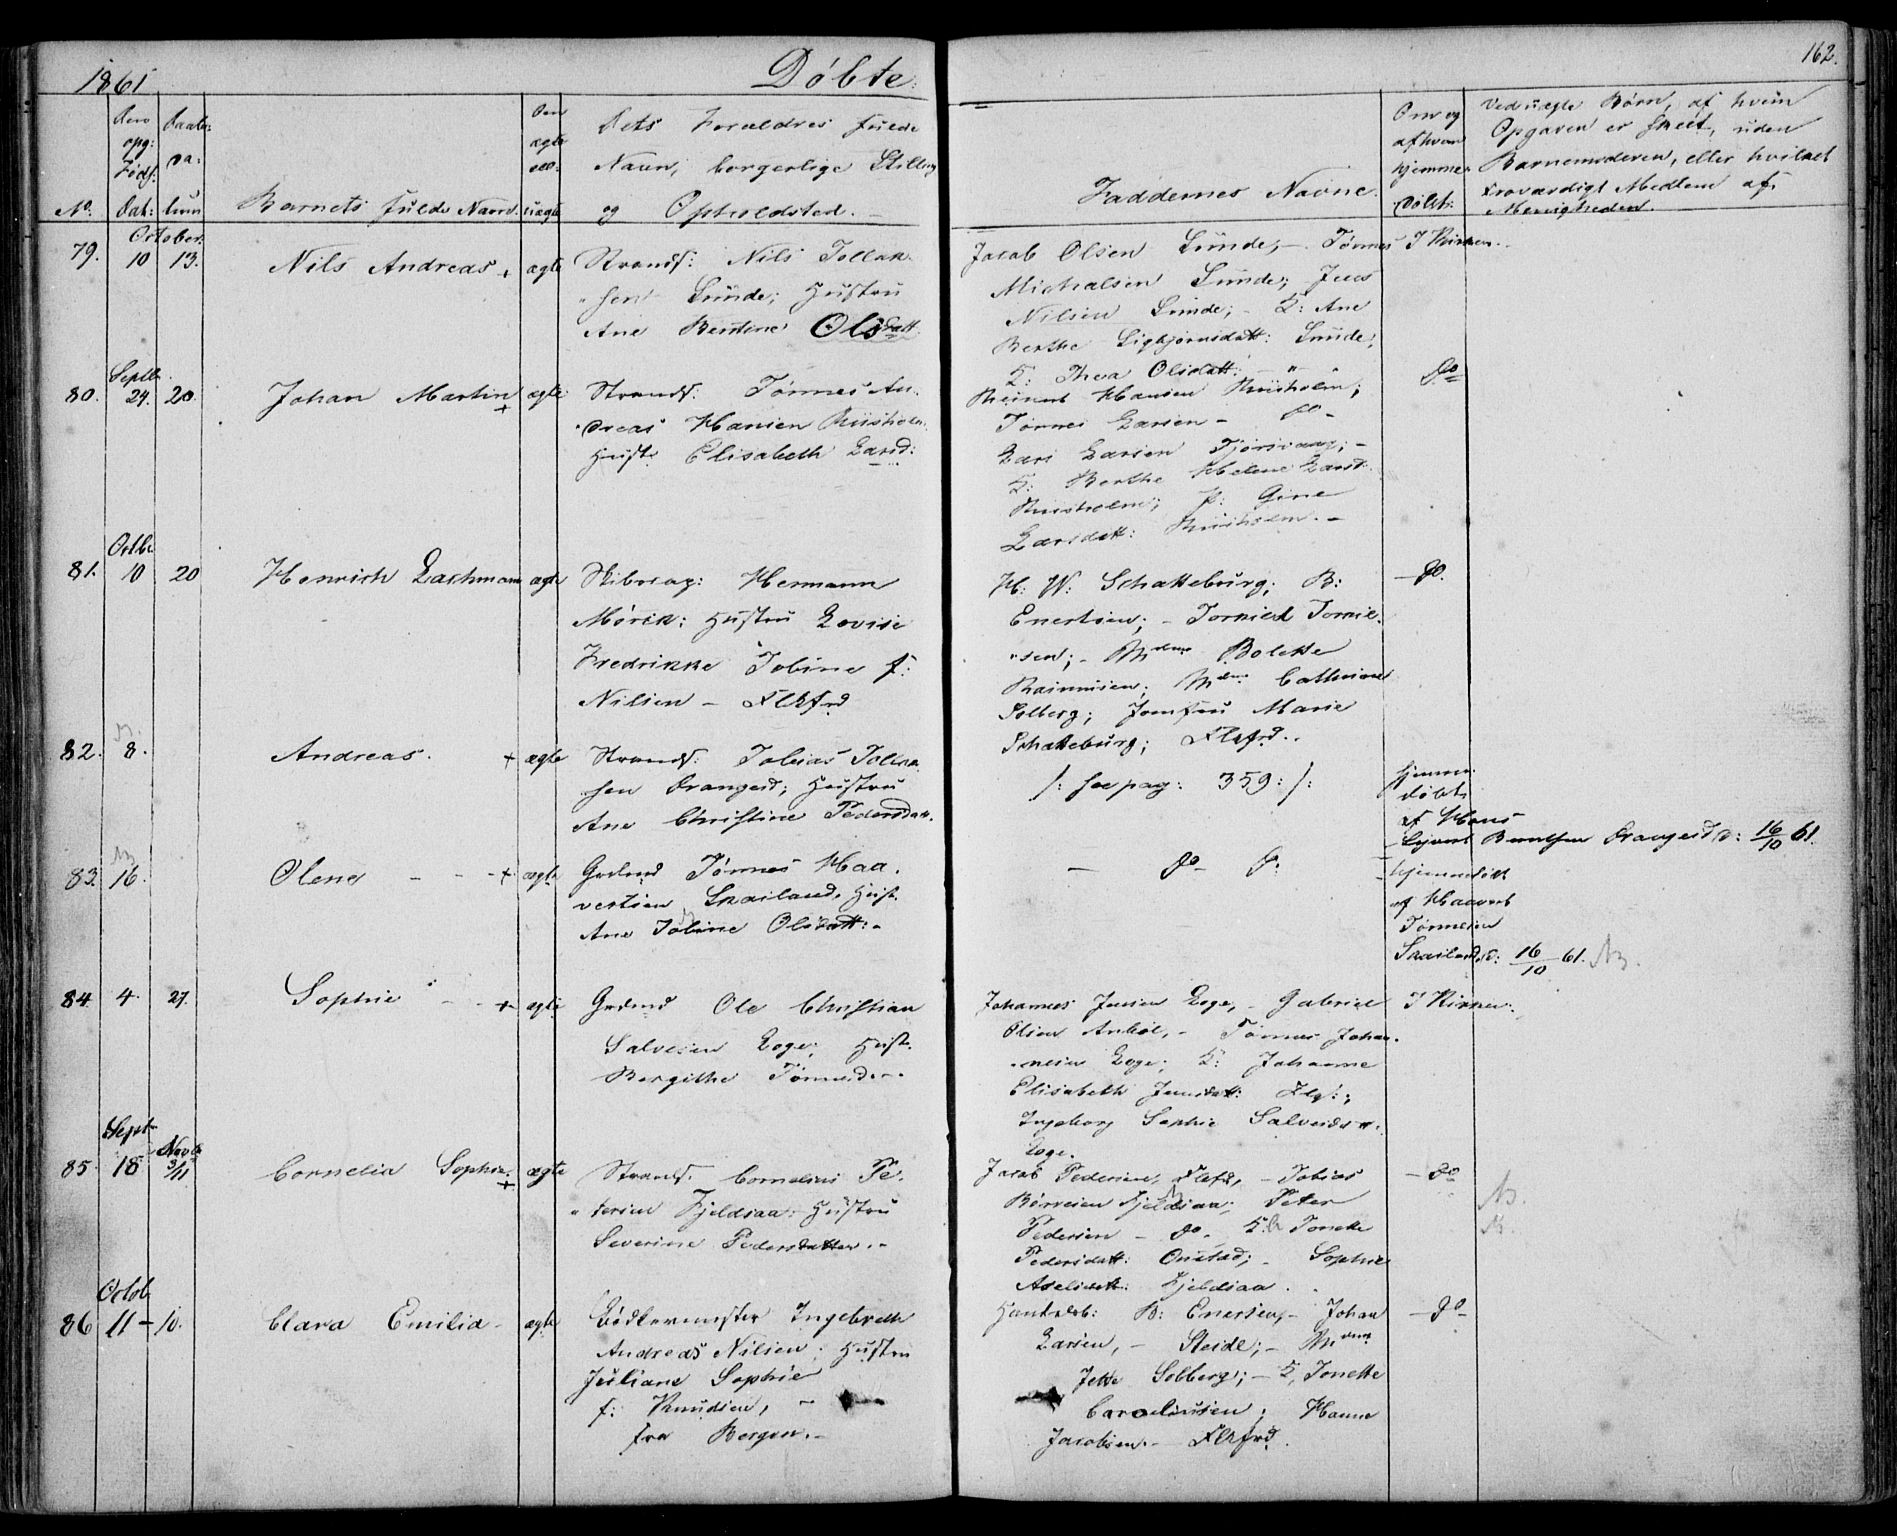 1861
Døbte.
162.
No.
Dets opg: Føds. Dat:
Daabs: Da: tum
Barnets fulde Navn.
Om ægte ell: uægte
Dets Forældres fulde
Navn, borgerlige Stilling
og Opholdsted. —
Faddernes Navne.
Om og af hvem hjemme døbt.
Ved uægte Børn, af hvem
Opgaven er skeet, uden
Barnemoderen, eller hvilket
troværdigt Medlem af
Menigheden.
October.
79. 10 13. Nils Andreas + ægte
Strands: Nils Tollak-
sen Sunde; Hustru
Ane Bertine Olsdatt.
Jacob Olsen Sunde, — Tønnes
Michalsen Sunde; Jens
Nilsen Sunde; — K: Ane
Berthe Sigbjørnsdatt: Sunde;
K: Thea Olsdatt: — " — "
I Kirken.
Septbr.
80. 24. 20. Johan Martin + ægte
Strands: Tønnes An-
dreas Hansen Riisholm.
Hustr Elisabeth Larsd:
Reinert Hansen Riisholm;
Tønnes Larsen — do —
Lars Larsen Tjørsvaag; —
K: Berthe Helene Larsd:
Riisholm; P: Gine
Larsdatt: Riisholm. —
do
Octbr
81. 10 20 Henrich Lachmann ægte
Skibscap: Hermann
Mørik: Hustru Lovise
Fredrikke Tobine f:
Nilsen — Flkfrd
H: W: Schatteburg; B:
Enertsen; — Torkild Torkil-
sen; — Mdme Bolette
Rasmusen; Mdme Cathrine
Solberg; Jomfru Marie
Schatteburg; Flkfrd..
— do.
82. 8. Andreas. + ægte
Strands: Tobias Tollak-
sen Drangeid; Hustru
Ane Christine Pedersdatt.
/: see pag: 359 :/:
hjemme-
døbt
af Hans
Sivert Berntsen Drangeid, d: 16/10 61.
83. 16. Olene — — — + ægte
Grdmd Tønnes Haa-
vertsen Skailand, Hust.
Ane Tobine Olsdatt: —
— do — do
hjemmedøbt
af Haavert
Tønnesen
Skailand, d: 16/10 61. NB.
84. 4. 27. Sophie — — + ægte
Grdmd Ole Christian
Salvesen Loge; Hust.
Bergithe Tønnesd. —
Johannes Jensen Loge, — Gabriel
Olsen Anbøe, — Tønnes Johan-
nesen Loge; K: Johanne
Elisabeth Jensdatt: Flg:;
Ingeborg Sophie Salvesdatt:
Loge.
I Kirken:
Septr Novb.
85. 18 3/11 Cornelia Sophie. + ægte
Strands. Cornelius Pe-
dersen Fjeldsaa: Hustru
Severine Pedersdatter. —
Jacob Pedersen, Flkfd, — Tobias
Børresen Fjeldsaa; Peter
Pedersen — do. K: Tonette
Pedersdatt: Onstad; — Sophie
Axelsdatt: Fjeldsaa.
— do
NB.
Octob.
86 11 — 10. Clara Emilia — ægte
Bødkermester Ingebreth
Andreas Nilsen; Hustru
Juliane Sophie
f: Knudsen, —
fra Bergen. —
Handelsb: B: Enersen, — Johan
Larsen, — Steidl; — Mdme
Jette Solberg; — K, Tonette
Caroliusen; Hanne
Jacobsen. — Flkfrd.
— do —